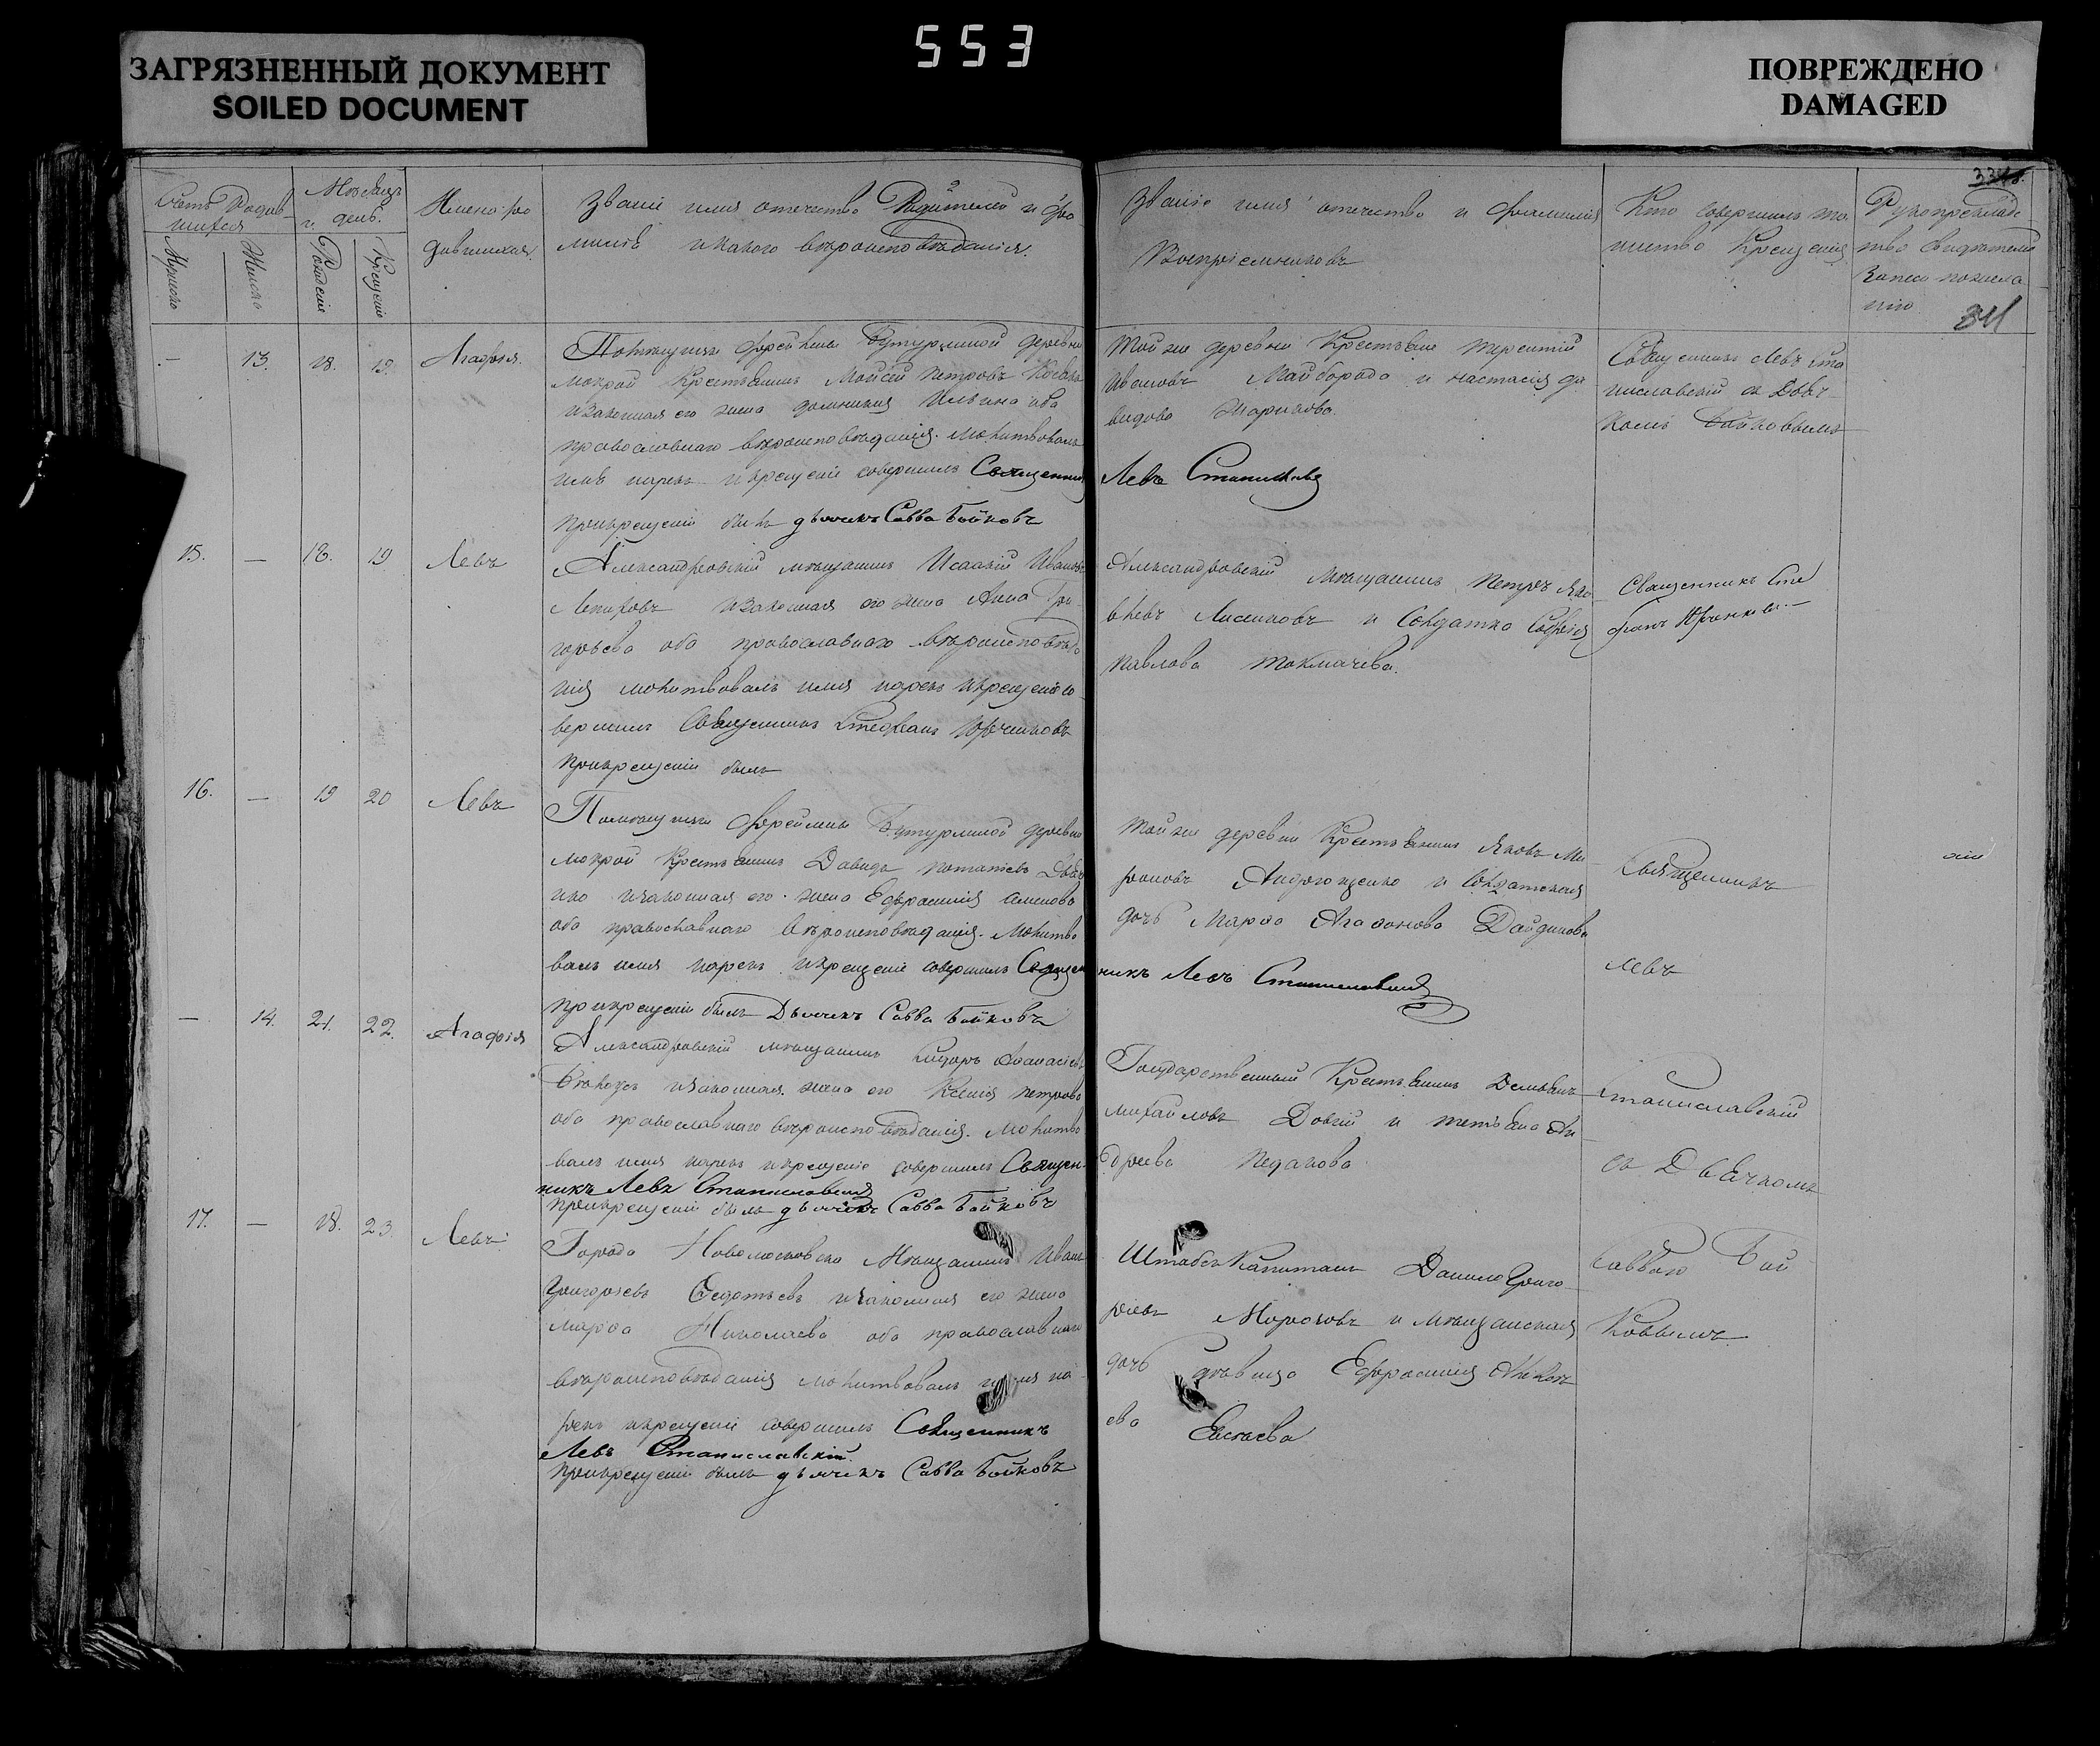 553
ЗАГРЯЗНЕННЫЙ ДОКУМЕНТ
SOILED DOCUMENT
ПОВРЕЖДЕНО
DAMAGED
341
Счетъ Родив-
шихся
Мужеска
Женска
Мѣсяцъ
и день.
Рожденiе
Крещенiе
Имена ро
дившихся.
Званiе имя отечество Родителей и фа
милiя и какого вѣроисповѣданiя.
Званiе имя отечество и фамилiя
Воспрiемниковъ
Кто совершилъ та
инство Крещенiя
Рукоприклад
ство свидѣтелей
записи по жела
нiю
— 13. 18. 19. Агафья.
Помѣщицы Фрейлины Бутурлиной деревни
Мокрой Крестьянинъ Моисей Петровъ
и законная его жена Домникiя Ильина оба
православнаго вѣроисповѣданiя. Молитвовалъ
имя нарекъ и крещенiе совершилъ Священникъ
Левъ
при крещенiи былъ дьячекъ Савва Бойковъ
Той же деревни Крестьяне Терентiй
Ивановъ Майборода и Настасiя Да
видова
Священникъ Левъ Ста
ниславскiй съ Дьяч-
комъ Бойковымъ
15. — 18. 19 Левъ
Александровскiй мѣщанинъ Исаакiй Ивановъ
и законная его жена Анна Гри-
горьева оба православнаго вѣроисповѣда
нiя молитвовалъ имя нарекъ и крещенiе со-
вершилъ Священникъ Стефанъ
при крещенiи былъ
Александровскiй Мѣщанинъ Петръ Яко-
влевъ и Солдатка Софiя
Павлова Токмачева.
Священникъ Сте
фанъ
16. — 19 20 Левъ
Помѣщицы Фрейлины Бутурлиной деревни
Мокрой Крестьянинъ Давидъ Потапiевъ
и законная его жена Ефросинiя
оба православнаго вѣроисповѣданiя. Молитво
валъ имя нарекъ и крещенiе совершилъ Священ
никъ Левъ Станиславскiй
при крещенiи былъ Дьячекъ Савва Бойковъ
Той же деревни Крестьянинъ Яковъ Ми-
роновъ и Солдатская
дочь Марфа Агафонова
Священникъ
Левъ
— 14. 21. 22. Агафiя
Александровскiй мѣщанинъ Афанасiевъ
и законная жена его Ксенiя Петрова
оба православнаго вѣроисповѣданiя. Молитво
валъ имя нарекъ и крещенiе совершилъ Священ-
никъ Левъ Станиславскiй
при крещенiи былъ дьячекъ Савва Бойковъ
Государственный Крестьянинъ Демьянъ
Михайловъ Довгiй и Татьяна Ан
дреева
Станиславскiй
съ Дьячкомъ
17. — 18. 23. Левъ
Города Новомосковска Мѣщанинъ Иванъ
Григорiевъ Федотьевъ и законная его жена
Марфа Николаева оба православнаго
вѣроисповѣданiя молитвовалъ имя на-
рекъ и крещенiе совершилъ Священникъ
Левъ Станиславскiй
при крещенiи былъ дьячекъ Савва Бойковъ
Штабсъ Капитанъ Данило Григо-
рiевъ Морозовъ и мѣщанская
дочь дѣвица Ефросинiя Алексѣ
ева
Саввою Бой
ковымъ